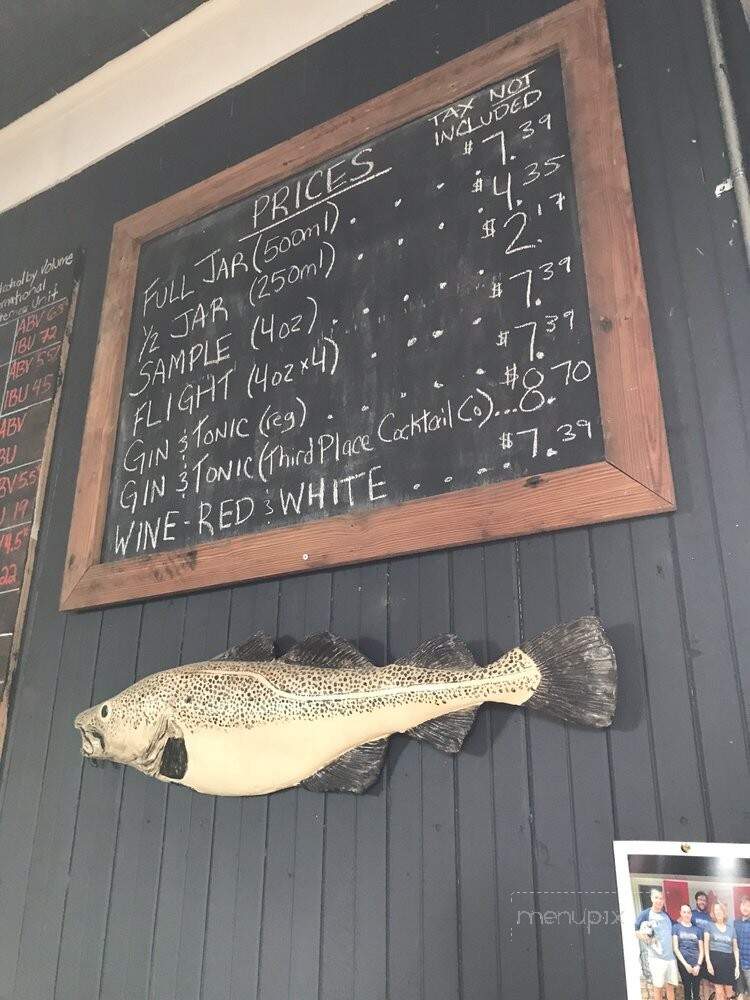 TAX NOT
INCLUDED
PRICES
FULL JAR (500ml) . . . $7.39
1/2 JAR (250ml) . . . $4.35
SAMPLE (4oz) . . . . . $2.17
FLIGHT (4oz x4) . . . . $7.39
GIN & TONIC (reg) . . . . . $7.39
GIN & TONIC (Third Place Cocktail Co)... $8.70
WINE-RED & WHITE . . . . $7.39
by Volume
Unit
ABV 6.3
IBU 72
ABV 5.5
IBU 45
ABV
BU
5.5
19
4.5
22
menupix